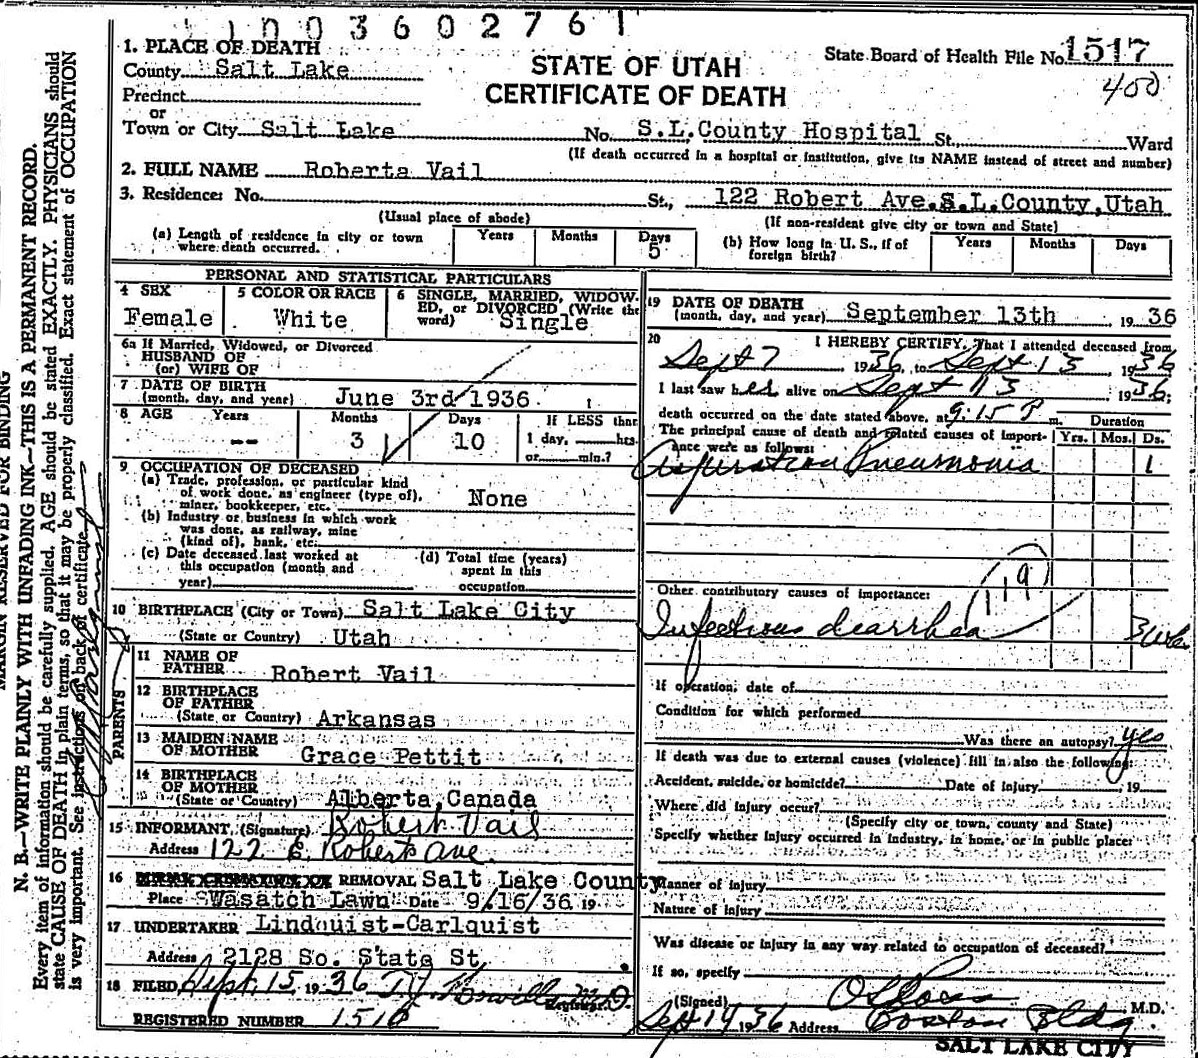 1003602761
1. PLACE OF DEATH
County Salt Lake
Precinct
or
Town or City Salt Lake No. S.L.County Hospital St., Ward
(If death occurred in a hospital or institution, give its NAME instead of street and number)
STATE OF UTAH
CERTIFICATE OF DEATH
State Board of Health File No. 1517
400
2. FULL NAME Roberta Vail
3. Residence: No. St., 122 Robert Ave.S.L.County,Utah
(Usual place of abode) (If non-resident give city or town and State)
(a) Length of residence in city or town where death occurred. Years Months Days 5
(b) How long in U. S., if of foreign birth? Years Months Days
PERSONAL AND STATISTICAL PARTICULARS
4 SEX Female
5 COLOR OR RACE White
6 SINGLE, MARRIED, WIDOWED, or DIVORCED (Write the word) Single
6a If Married, Widowed, or Divorced
HUSBAND OF
(or) WIFE OF
7 DATE OF BIRTH
(month, day, and year) June 3rd 1936
8 AGE Years -- Months 3 Days 10 If LESS than
1 day, hrs.
or min.?
9 OCCUPATION OF DECEASED
(a) Trade, profession, or particular kind
of work done, as engineer (type of),
miner, bookkeeper, etc. None
(b) Industry or business in which work
was done, as railway, mine
(kind of), bank, etc.
(c) Date deceased last worked at
this occupation (month and
year)
(d) Total time (years)
spent in this
occupation
10 BIRTHPLACE (City or Town) Salt Lake City
(State or Country) Utah
PARENTS
11 NAME OF
FATHER Robert Vail
12 BIRTHPLACE
OF FATHER
(State or Country) Arkansas
13 MAIDEN NAME
OF MOTHER Grace Pettit
14 BIRTHPLACE
OF MOTHER
(State or Country) Alberta,Canada
15 INFORMANT, (Signature) Robert Vail
Address 122 E. Robert Ave.
16 REMOVAL Salt Lake County
Place Wasatch Lawn Date 9/16/36 19
17 UNDERTAKER Lindquist-Carlquist
Address 2128 So. State St.
18 FILED, Sept. 15, 1936
REGISTERED NUMBER 1516
19 DATE OF DEATH
(month, day, and year) September 13th, 1936
20 I HEREBY CERTIFY, That I attended deceased from
Sept 7 1936, to Sept 13, 1936
I last saw her alive on Sept 13 1936;
death occurred on the date stated above, at 9:15 P m.
The principal cause of death and related causes of importance were as follows:
Duration
Yrs. Mos. Ds.
Aspiration Pneumonia 1
119
Other contributory causes of importance:
Infectious diarrhea 3 wks.
If operation, date of
Condition for which performed
Was there an autopsy? yes
If death was due to external causes (violence) fill in also the following:
Accident, suicide, or homicide? Date of Injury 19
Where did injury occur?
(Specify city or town, county and State)
Specify whether injury occurred in industry, in home, or in public place:
Manner of injury
Nature of injury
Was disease or injury in any way related to occupation of deceased?
If so, specify
(Signed) M.D.
Sept 14 1936 Address Boston Bldg.
SALT LAKE CITY
MARGIN RESERVED FOR BINDING
N. B.—WRITE PLAINLY WITH UNFADING INK—THIS IS A PERMANENT RECORD.
Every item of information should be carefully supplied. AGE should be stated EXACTLY. PHYSICIANS should
state CAUSE OF DEATH in plain terms, so that it may be properly classified. Exact statement of OCCUPATION
is very important. See instructions on back of certificate.